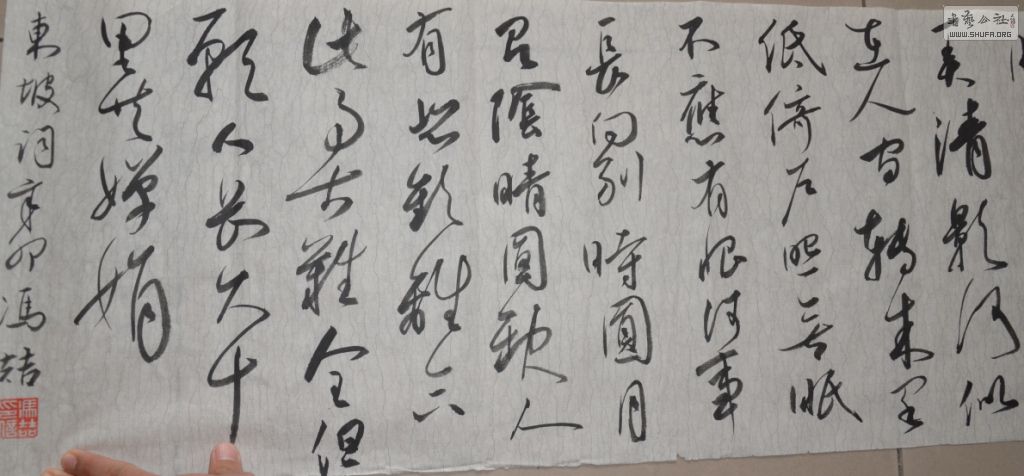 弄清影何似
在人间轉朱阁
低倚户照无眠
不應有恨何事
長向别時圓月
有陰晴圓缺人
有悲歡離合
此事古難全但
願人長久千
里共嬋娟
東坡詞辛卯馮喆
書藝公社
WWW.SHUFA.ORG